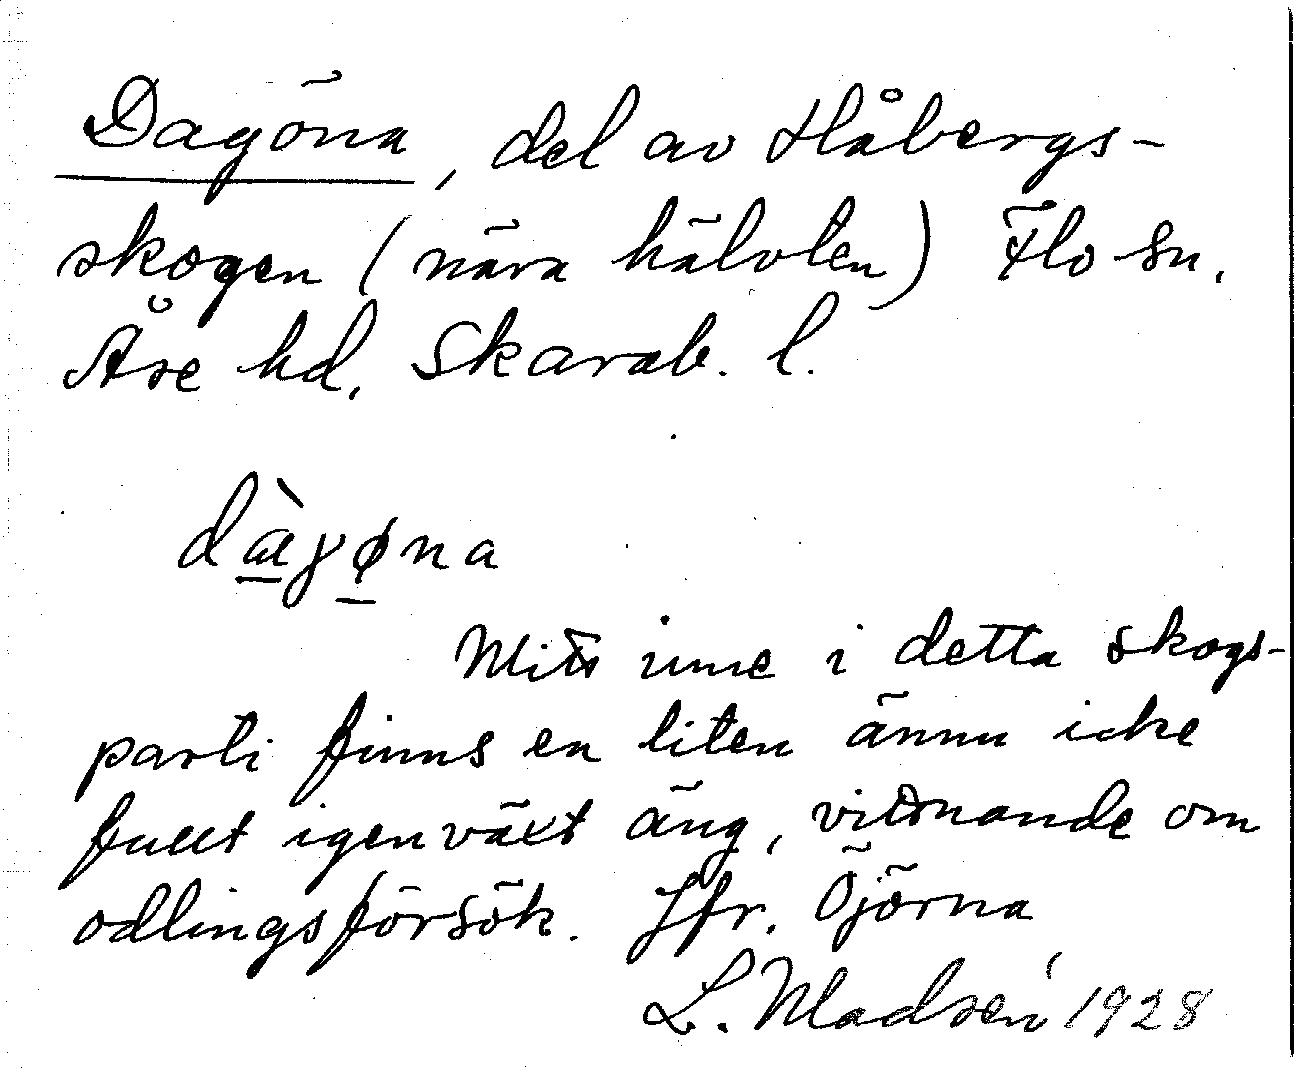 Dagöna, del av Håbergs-
skogen (nära hälvten) Flo sn.
Åse hd. Skarab. l.
dàgøna
Mitt inne i detta skogs-
parti finns en liten ännu icke
fullt igenväxt äng, vittnande om
odlingsförsök. Jfr. Öjörna
L. Madsén 1928